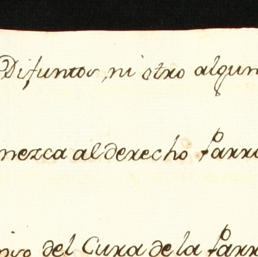 Difuntos, ni otro algun
nezca al derecho Parro
del Cura de la Parr